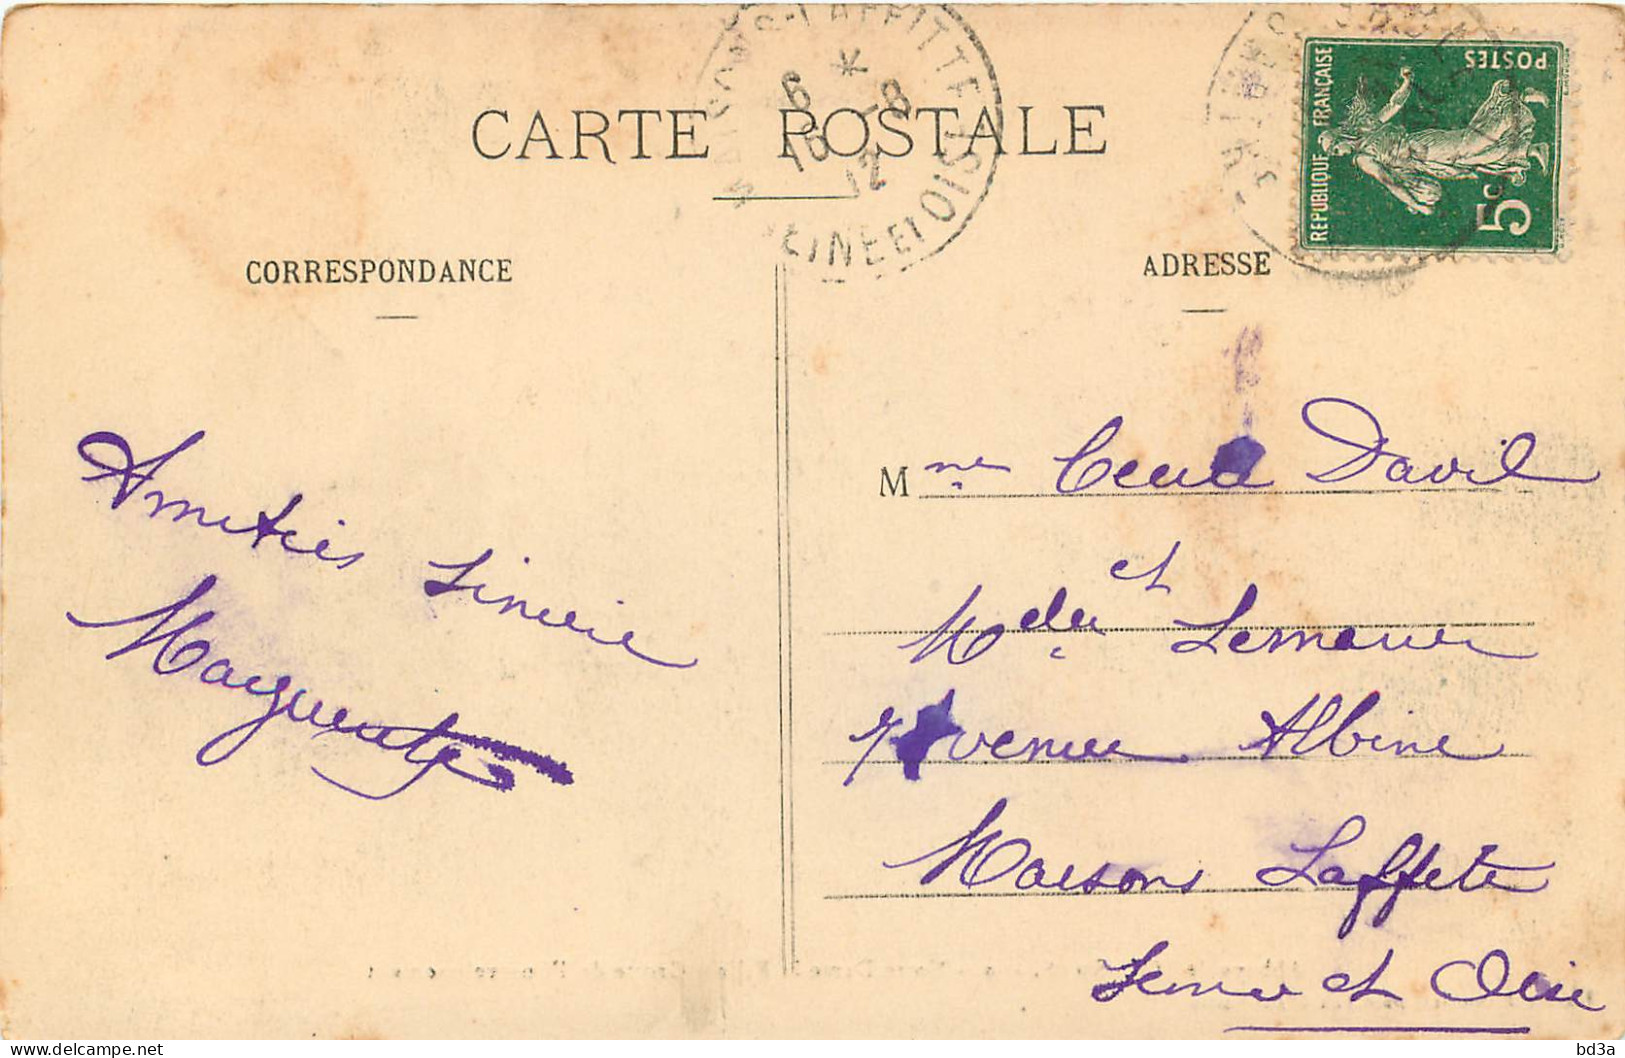 CARTE POSTALE
MAISONS-LAFFITTE
6 * 
10 -8
12
SEINE ET OISE
RÉPUBLIQUE FRANÇAISE
POSTES
5c
CORRESPONDANCE
ADRESSE
Amitiés Sincère
Marguerite
Mme David
et
Mdlle Lemaire
7 Avenue Albine
Maisons Laffite
Seine et Oise
bd3a